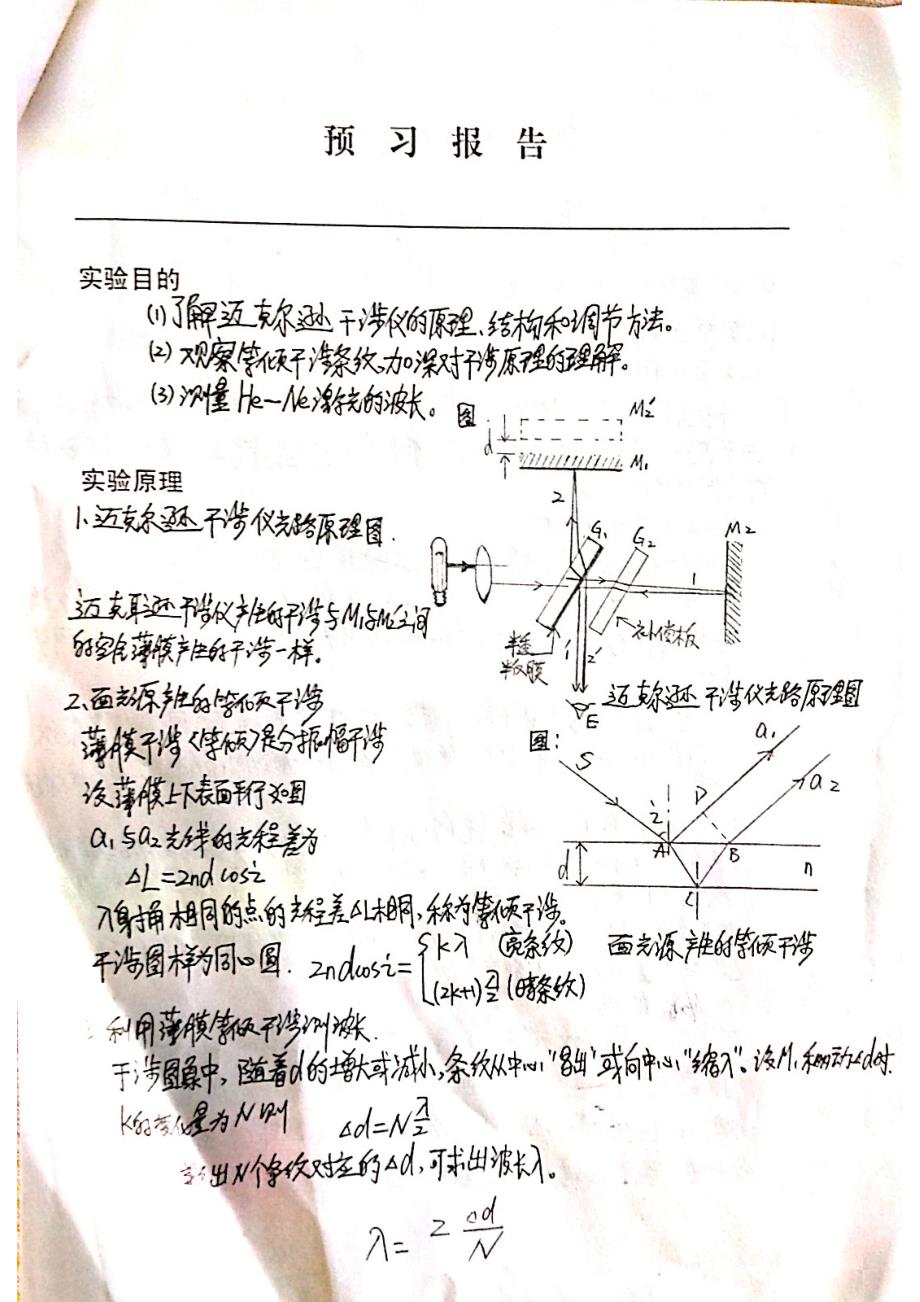 预习报告
实验目的
(1)了解迈克尔逊干涉仪的原理、结构和调节方法。
(2)观察等倾干涉条纹,加深对干涉原理的理解。
(3)测量He—Ne激光的波长。
图
M₂′
d
M₁
实验原理
1、迈克尔逊干涉仪光路原理图.
2
G₁
G₂
M₂
1
迈克耳逊干涉仪产生的干涉与M₁与M₂′之间
的空气薄膜产生的干涉一样。
半透
半反膜
1′
2′
补偿板
E
迈克尔逊干涉仪光路原理图
2、面光源产生的等倾干涉
薄膜干涉<等倾>是分振幅干涉
设薄膜上下表面平行如图
a₁与a₂光线的光程差为
ΔL=2nd cosi
图:
S
a₁
a₂
i
D
A
B
d
n
C
入射角相同的点的光程差ΔL相同,称为等倾干涉。
干涉图样为同心圆. 2ndcosi= { kλ (亮条纹)
(2k+1)λ/2 (暗条纹)
面光源产生的等倾干涉
利用薄膜等倾干涉测波长.
干涉图象中,随着d的增大或减小,条纹从中心"冒出"或向中心"缩入"。设M₁移动Δd时.
k的变化量为N则 Δd=N λ/2
出N个条纹对应的Δd,可求出波长λ。
λ= 2 Δd/N